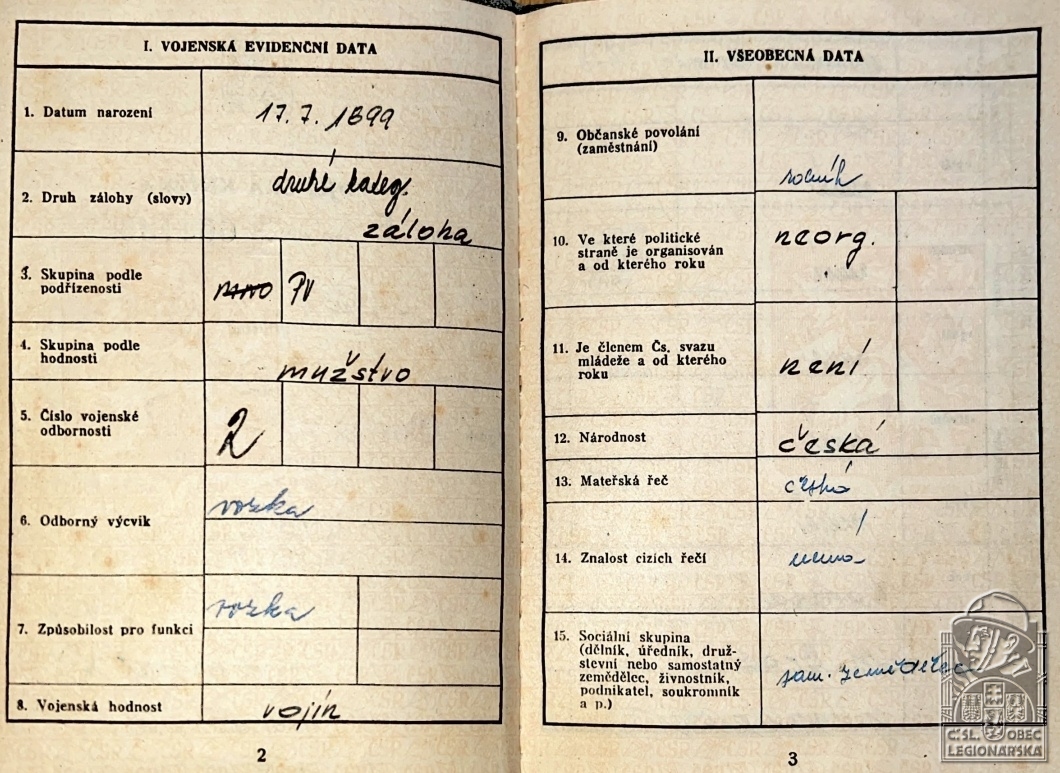 I. VOJENSKÁ EVIDENČNÍ DATA
1. Datum narození
17. 7. 1899
2. Druh zálohy (slovy)
druhé kateg.
záloha
3. Skupina podle
podřízenosti
mno PV
4. Skupina podle
hodnosti
mužstvo
5. Číslo vojenské
odbornosti
2
6. Odborný výcvik
vozka
7. Způsobilost pro funkci
vozka
8. Vojenská hodnost
vojín
2
II. VŠEOBECNÁ DATA
9. Občanské povolání
(zaměstnání)
rolník
10. Ve které politické
straně je organisován
a od kterého roku
neorg.
11. Je členem Čs. svazu
mládeže a od kterého
roku
není
12. Národnost
česká
13. Mateřská řeč
česká
14. Znalost cizích řečí
nemá
15. Sociální skupina
(dělník, úředník, druž-
stevní nebo samostatný
zemědělec, živnostník,
podnikatel, soukromník
a p.)
sam. zemědělec
3
ČSL. OBEC
LEGIONÁŘSKÁ